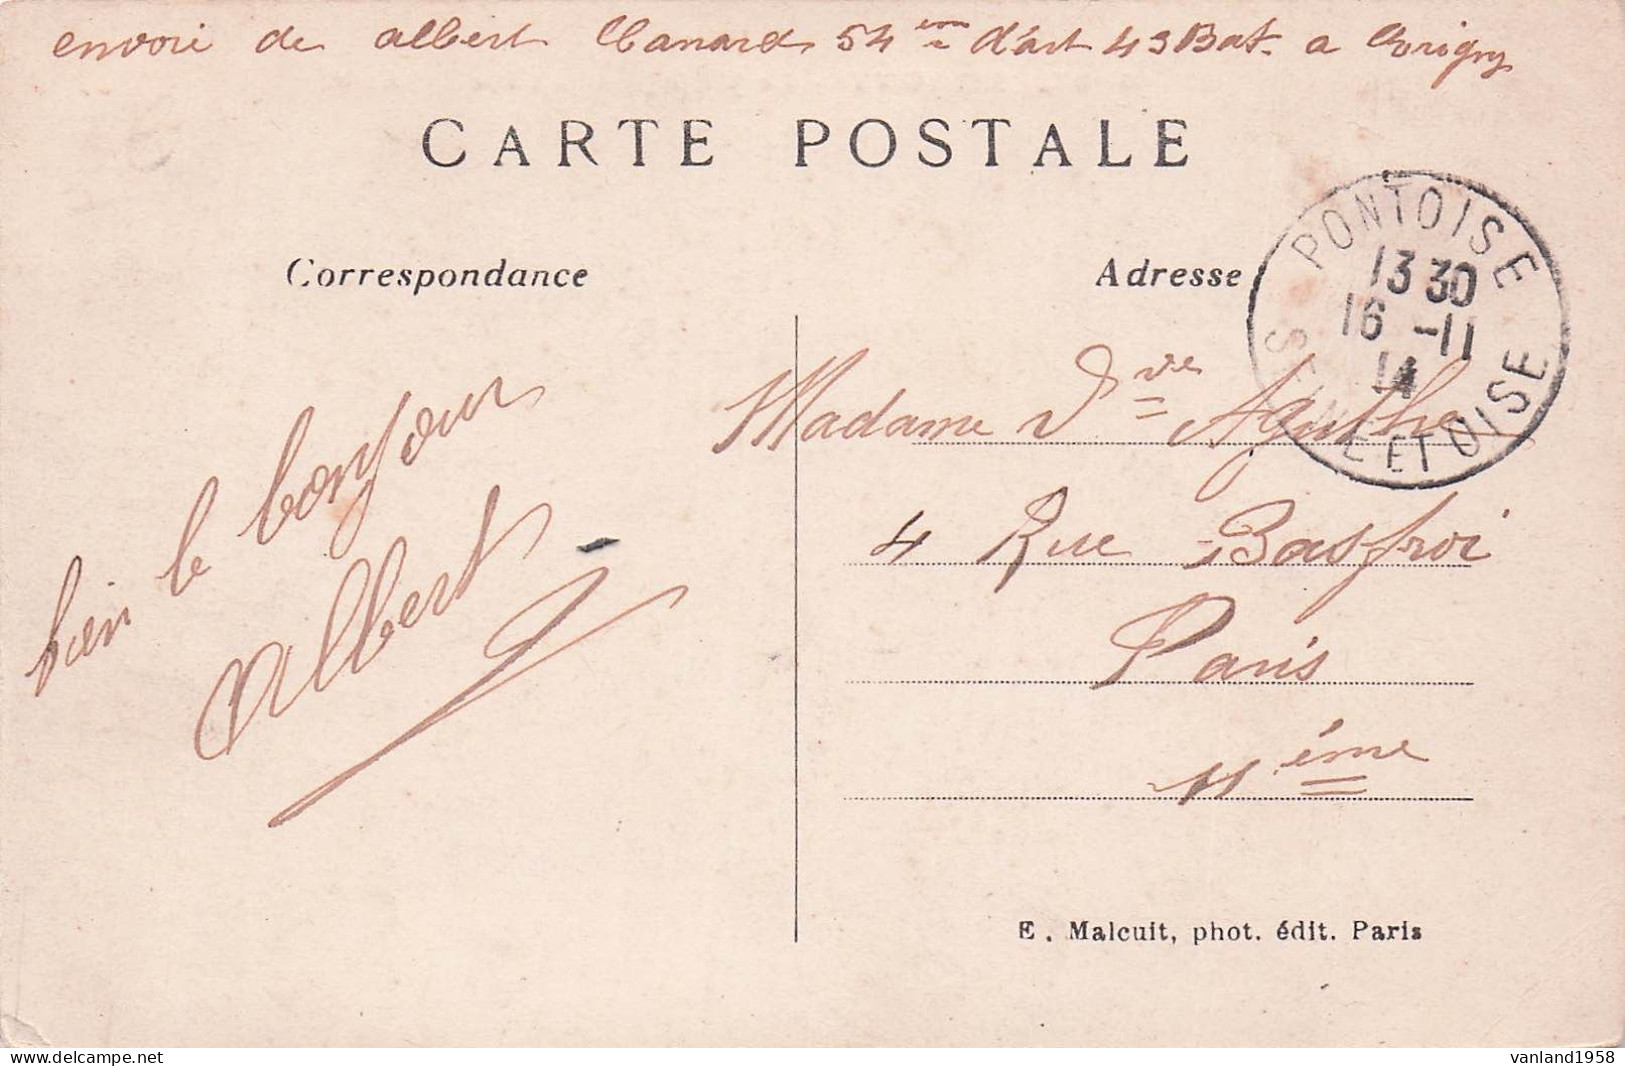 envoie de albert Canard 54 ème d'art 43 Bat. a
CARTE POSTALE
PONTOISE
13 30
16 -11
14
SEINE ET OISE
Correspondance
Adresse
bien le bonjour
Albert
Madame Vve Agathe
4 Rue Basfroi
Paris
11 ème
E. Malcuit, phot. édit. Paris
vanland1958